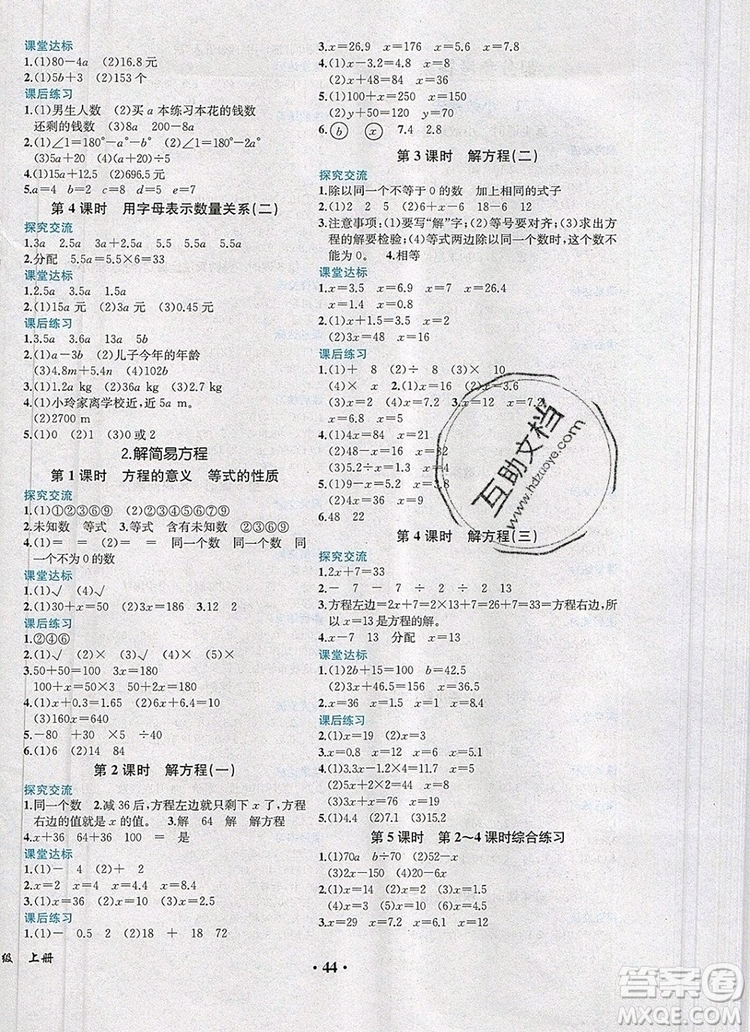 课堂达标
1.(1)80－4a (2)160－a
2.(1)5b＋3 (2)153 个
课后练习
1.(1)男生人数 (2)买 a 本练习本花的钱数
还剩的钱数 (3)8a 200－8a
2.(1)∠1＝180°－a° (2)∠1＝90°－a°
3.(1)5a＋20 (2)3(a＋b)
4.(1)16a＋12b (2)696.5 元
5.a＝4 b＝2 c＝1 d＝8
第 4 课时 用字母表示数量关系(二)
探究交流
1.3a 2.5a 3a＋2.5a 5.5a
2.分配 5.5a＝5.5×6＝33
课堂达标
1.3a 3.5a 1.5a
2.(1)15a 元 (2)1a 元 (3)0.45 元
课后练习
1.3.5a 3.6a 134a 5.4a
2.(1)a－3 (2)儿子今年的年龄
(3)4m＋0.9n (4)102b
3.(1)1.2a kg (2)36a kg (3)1.2a kg
4.(1)小玲家离学校近，近 5a m。
(2)2700 m
5.(1)0 (2)1 (3)0 或 2
2.解简易方程
第 1 课时 方程的意义 等式的性质
探究交流
1.(1)①②③⑥⑨ (2)②③⑥⑨
2.未知数 等式 等式 含有未知数 ②③⑥⑨
3.(1)＝ ＝ (2)＝ ＝ 同一个数 同一个数
同一个不为 0 的数
课堂达标
1.(1)√ (2)× (4)√
2.(1)30＋50＝x (2)3x＝186 3.12 2
课后练习
1.②④⑥
2.(1)√ (2)√ (3)× (4)√ (5)×
3.50＋50＝100 x＋50＞100
100＋x＜50×3 100＋x＝50×5
4.(1)3x＝180 (2)x－36＝154
(3)4x＝100 (4)4x＝180
5.○＝9 △＝3
6.(1)6 (2)0 (3)x (4)6 (5)2 (6)2
第 2 课时 解方程(一)
探究交流
1.同一个数 2.减 36 后，方程左边就只剩下 x 了，方程
右边的值就是 x 的值。 3.解 64 解 解方程
4.x＋36 64＋36 100 ＝ 是
课堂达标
1.(1)－ 4 (2)＋ 2
2.x＝40 x＝24 x＝9
3.(1)x＝36 (2)x＝10 (3)x＝54
课后练习
1.(1)－ 0.5 2 (2)＋ 18 18 72
3.x＝26.9 x＝16 x＝234
4.(1)x－3.2＝4.8 x＝8
(2)x＋48＝84 x＝36
5.(1)100＋x＝250 x＝150
(2)y＋50＝120 y＝70
6.ⓑ ⓧ 7.4 2.8
第 3 课时 解方程(二)
探究交流
1.除以同一个不等于 0 的数 加上相同的式子
2.(1)2 2 5 (2)x x 6 6 x
3.注意事项：(1)要写“解”字；(2)等号要对齐；(3)求出方
程的解要检验；(4)等式两边除以同一个数时，这个数不
能为 0。 4.相等
课堂达标
1.x＝3.5 x＝6.9 x＝8 x＝7
2.(1)x＋1.5＝4 x＝2.5
(2)3x＝48 x＝16
课后练习
1.(1)＋ 8 (2)× 8 (3)÷ 6
(4)× x 2.(1)x＝20 (2)x＝3.6
(3)x＝2 (4)x＝0.7 3.x＝12 x＝7.7
4.(1)3x＝54 x＝18
(2)4x＝80 x＝20
5.(1)4x＝9.6 x＝2.4
6.48 22
第 4 课时 解方程(三)
探究交流
1.2x＋7＝33
2.－ 7 － 7 ÷ 2 ÷ 2 13
3.方程左边＝2x＋7＝2×13＋7＝33＝方程右边，所
以 x＝13 是方程的解。
4.x－7 13 分配 x－7
课堂达标
1.(1)2b＋15＝100 b＝42.5
(2)3x＋4＝50.5 x＝15.5
2.x＝36 x＝5 x＝20
课后练习
1.(1)x (2)19 2.(1)× (2)√
3.x＝0.8 x＝12 x＝14 x＝5
4.(1)3x＝44 x＝22
(2)5x＋2×2＝44 x＝8
5.(1)4.9 (2)1.4
第 5 课时 第 2～4 课时综合练习
1.(1)70a b÷70 (2)52－x
(3)2x＋4 (4)20－6x
2.(1)√ (2)× (3)√ (4)×
3.x＝29 x＝7 x＝6.9 x＝12
级 上册
• 44 •
互助文档
www.hdzuoye.com
答案圈
MXQE.COM